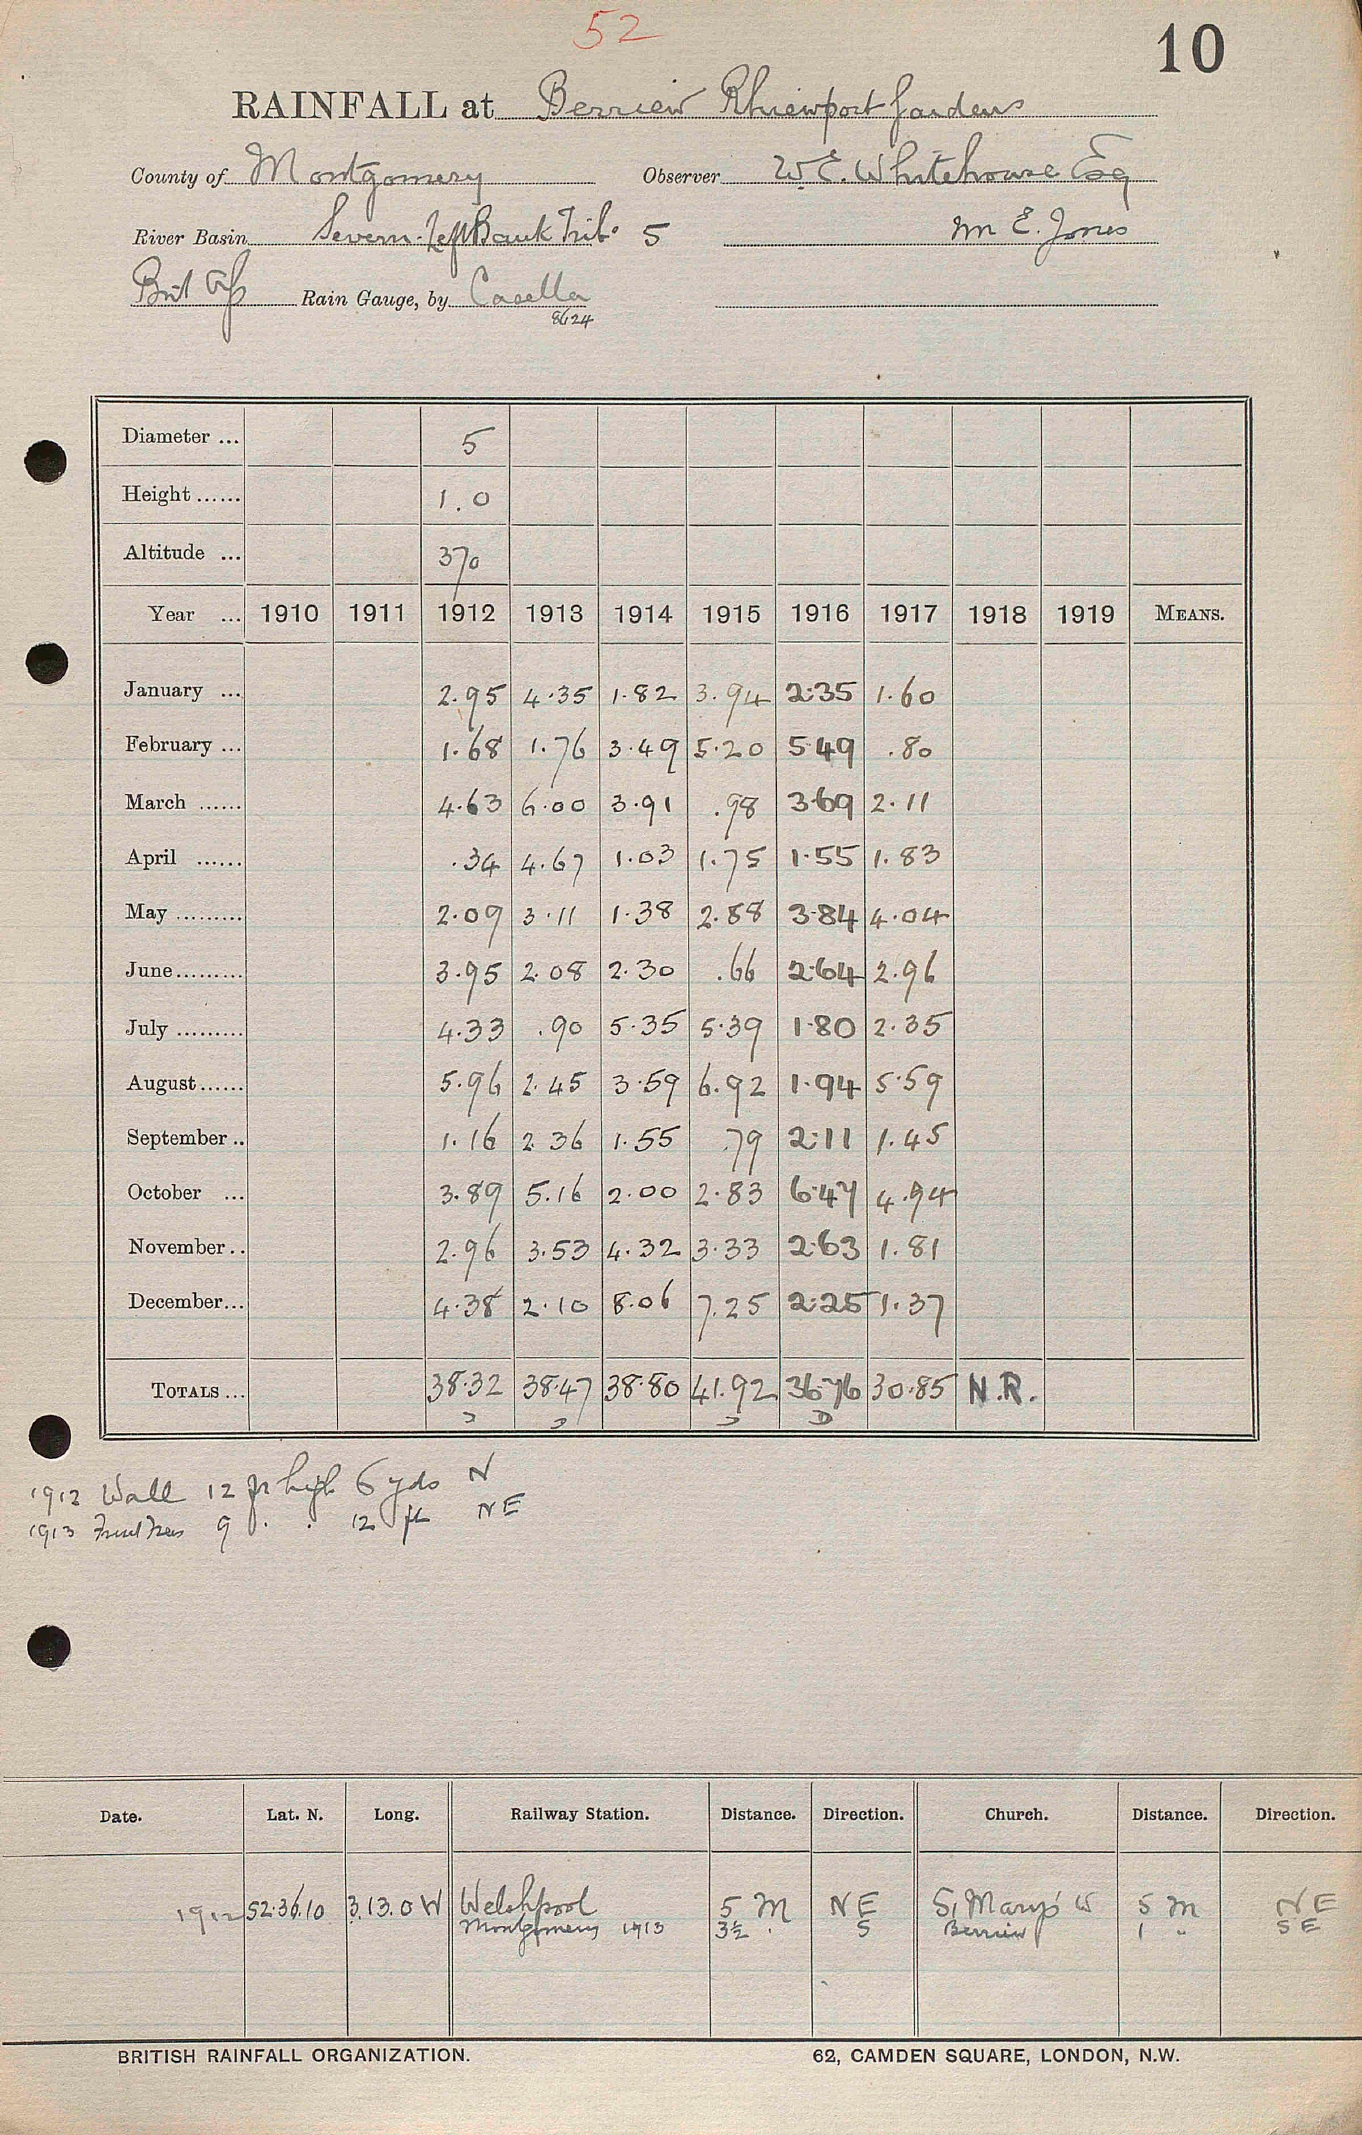 52
10
RAINFALL at Berriew Rhiewport Gardens
County of Montgomery Observer W. E. Whitehouse Esq
River Basin Severn-Left Bank Trib. 5 Mr E. Jones
Rain Gauge, by Casella
8624
Diameter ... 5
Height ...... 1.0
Altitude ... 370
Year ... 1910 1911 1912 1913 1914 1915 1916 1917 1918 1919 MEANS.
January ... 2.95 4.35 1.82 3.94 2.35 1.60
February ... 1.68 1.76 3.49 5.20 5.49 .80
March ...... 4.63 6.00 3.91 .98 3.69 2.11
April ...... .34 4.67 1.03 1.75 1.55 1.83
May ......... 2.09 3.11 1.38 2.88 3.84 4.04
June......... 3.95 2.08 2.30 .66 2.64 2.96
July ......... 4.33 .90 5.35 5.39 1.80 2.35
August...... 5.96 2.45 3.59 6.92 1.94 5.59
September .. 1.16 2.36 1.55 .79 2.11 1.45
October ... 3.89 5.16 2.00 2.83 6.47 4.94
November .. 2.96 3.53 4.32 3.33 2.63 1.81
December... 4.38 2.10 8.06 7.25 2.25 1.37
TOTALS ... 38.32 38.47 38.80 41.92 36.76 30.85 N.R.
1912 Wall 12 ft high 6 yds N
1913 Fruit Trees 9 . . 12 ft NE
Date. Lat. N. Long. Railway Station. Distance. Direction. Church. Distance. Direction.
1912 52.36.10 3.13.0 W Welshpool 5 M NE St Mary's W 5 M NE
Montgomery 1913 3½ " S Berriew 1 " SE
BRITISH RAINFALL ORGANIZATION. 62, CAMDEN SQUARE, LONDON, N.W.